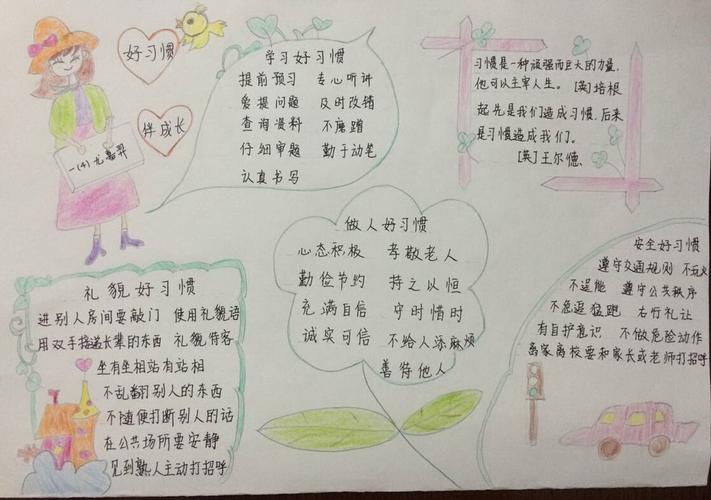 好习惯
伴成长
一(4)尤
学习好习惯
提前预习 专心听讲
爱提问题 及时改错
查询资料 不磨蹭
仔细审题 勤于动笔
认真书写
习惯是一种顽强而巨大的力量,
他可以主宰人生。 [英]培根
起先是我们造成习惯,后来
是习惯造成我们。
[英]王尔德
礼貌好习惯
进别人房间要敲门 使用礼貌语
用双手接递长辈的东西 礼貌待客
坐有坐相站有站相
不乱翻别人的东西
不随便打断别人的话
在公共场所要安静
见到熟人主动打招呼
做人好习惯
心态积极 孝敬老人
勤俭节约 持之以恒
充满自信 守时惜时
诚实可信 不给人添麻烦
善待他人
安全好习惯
遵守交通规则 不玩火
不逞能 遵守公共秩序
不急逗猛跑 右行礼让
有自护意识 不做危险动作
离家离校要和家长或老师打招呼